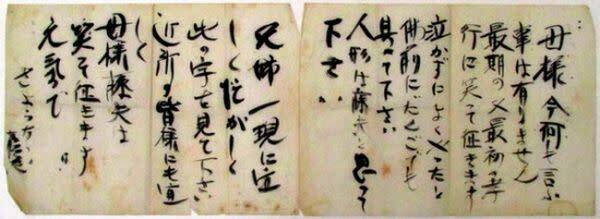 母様今何も言ふ
事は有りません
最期の又最初の孝
行に笑って征きます
泣かずによくやったと
佛前にだんごでも
具って下さい
人形は藤夫と思って
下さい
兄姉一現に宜
しくだがしく
此の字を見て下さい
近所の皆様にも宜
しく
母様藤夫は
笑って征きます
元気で
さようなら